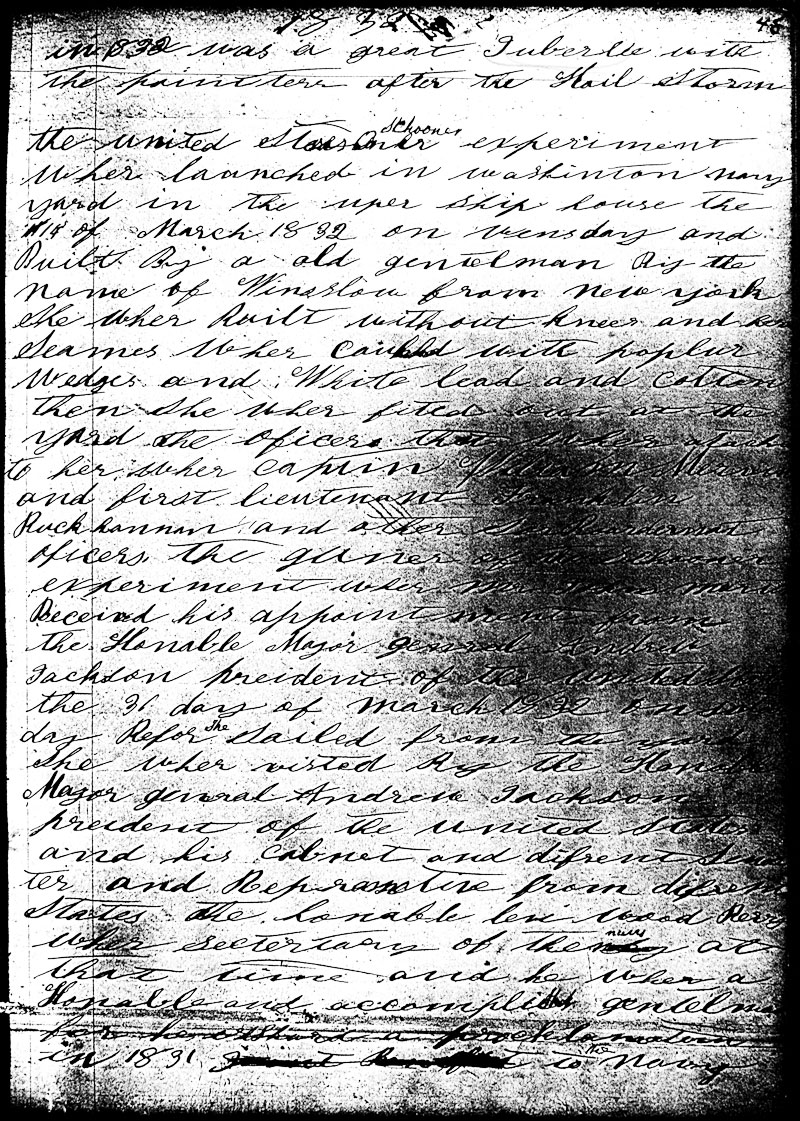 1832
in 1832 was a great Tuberle with
the painterr after the Hail Storm
schooner
the united States experiment
Wher launched in washinton navy
yard in the uper ship house the
14 of March 1832 on wensday and
Built By a old gentelman By the
name of Winslow from new york
She Wher Built without knees and her
Seames Wher Caulked with poplur
Wedges and White lead and Cotton
then She Wher fited out at the
yard the oficers that Wher atach
to her Wher Captin
and first lieutenant
Buckhannan and other
oficers the guner of the schooner
experiment wher Mr
Received his appointment from
the Honable Major general Andrew
Jackson president of the united
the 31 day of march 1832 on
day Befor she Sailed from the yard
She Wher visted By the Honable
Major general Andrew Jackson
preident of the united States
and his Cabnet and difrent Sena
ter and Representive from difrent
States the honable levi Wood Berry
Wher secretary of the navy at
that time and he Wher a
Honable and accomplish gentelman
in 1831 to the Navy